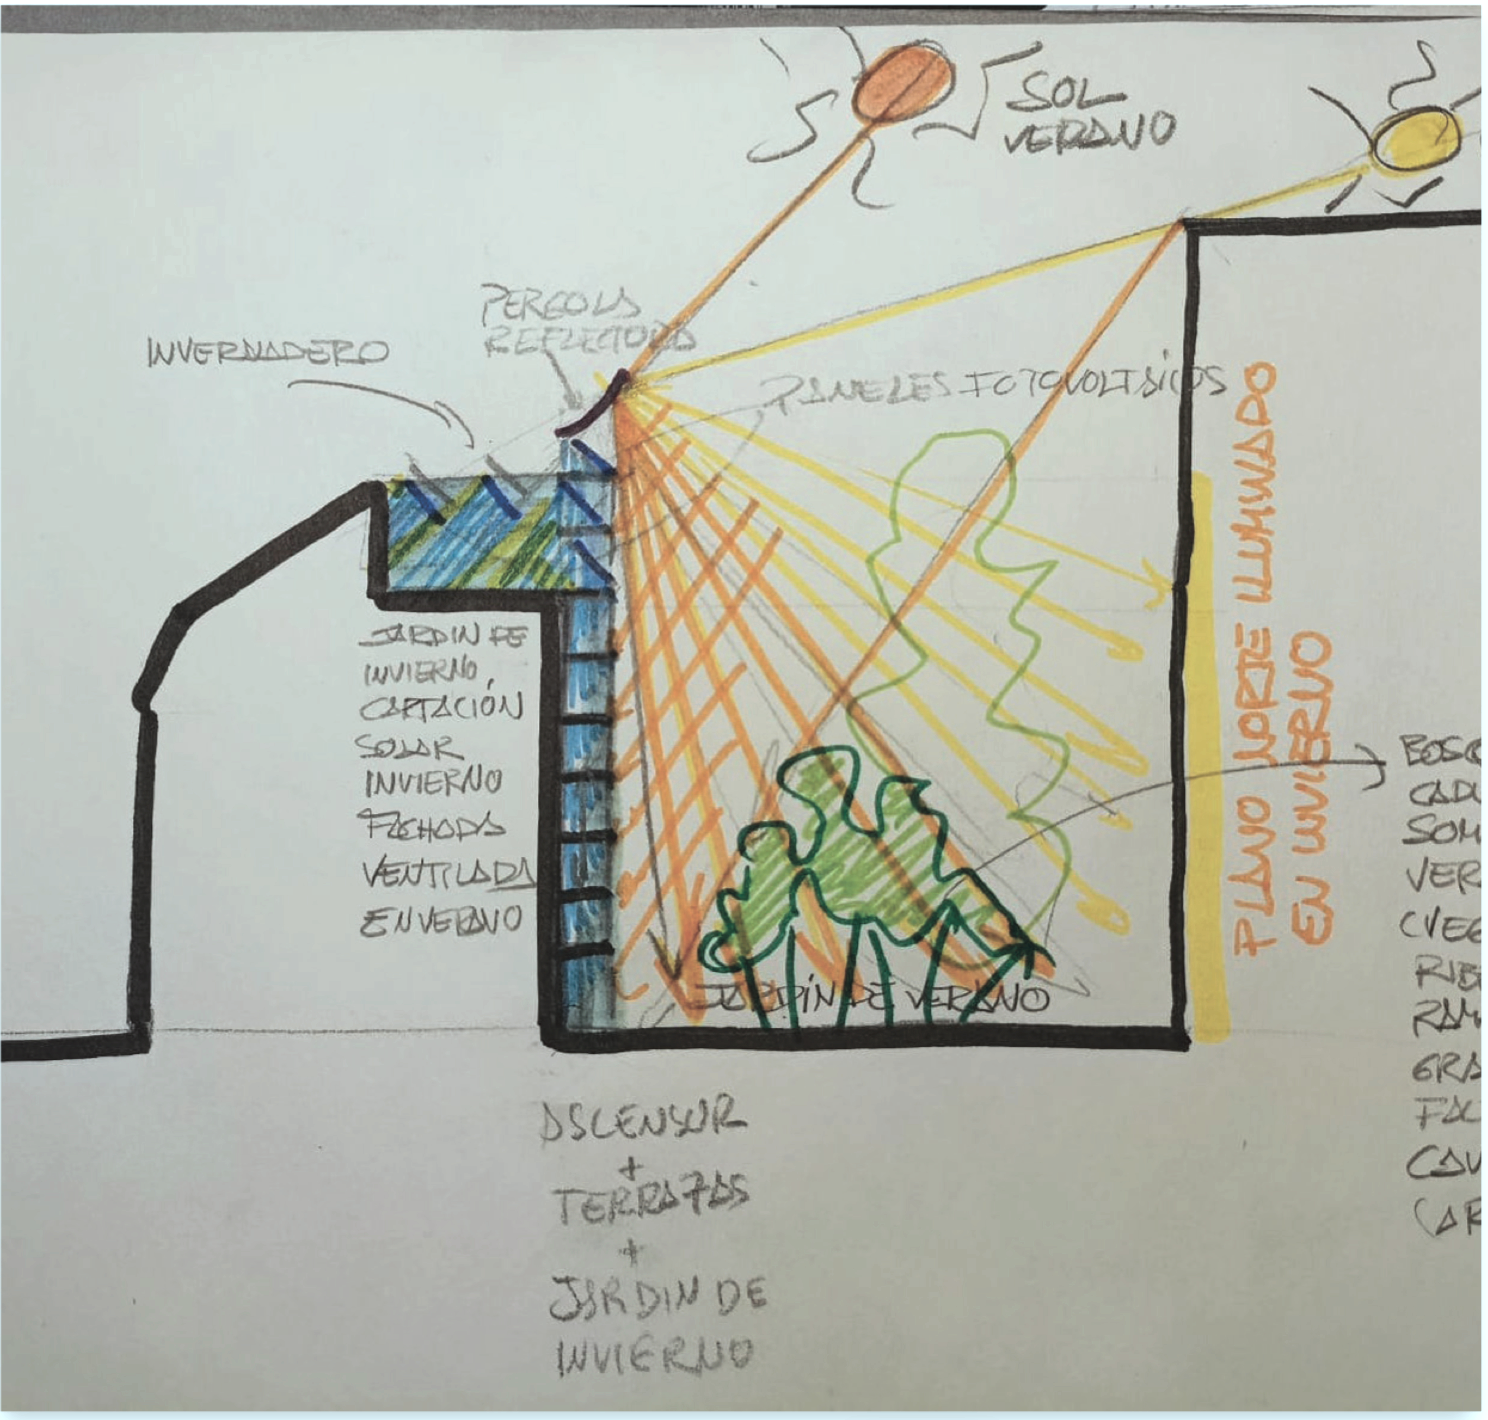 SOL
VERANO
PERGOLA
REFLECTORA
INVERNADERO
PANELES FOTOVOLTAICOS
PLANO NORTE ILUMINADO
EN INVIERNO
JARDIN DE
INVIERNO
CAPTACIÓN
SOLAR
INVIERNO
FACHADA
VENTILADA
EN VERANO
JARDÍN DE VERANO
BOSQ
CADU
SOM
VER
(VEG
RIB
RAM
GRA
FAC
CAV
CAR
ASCENSOR
+
TERRAZAS
+
JARDIN DE
INVIERNO